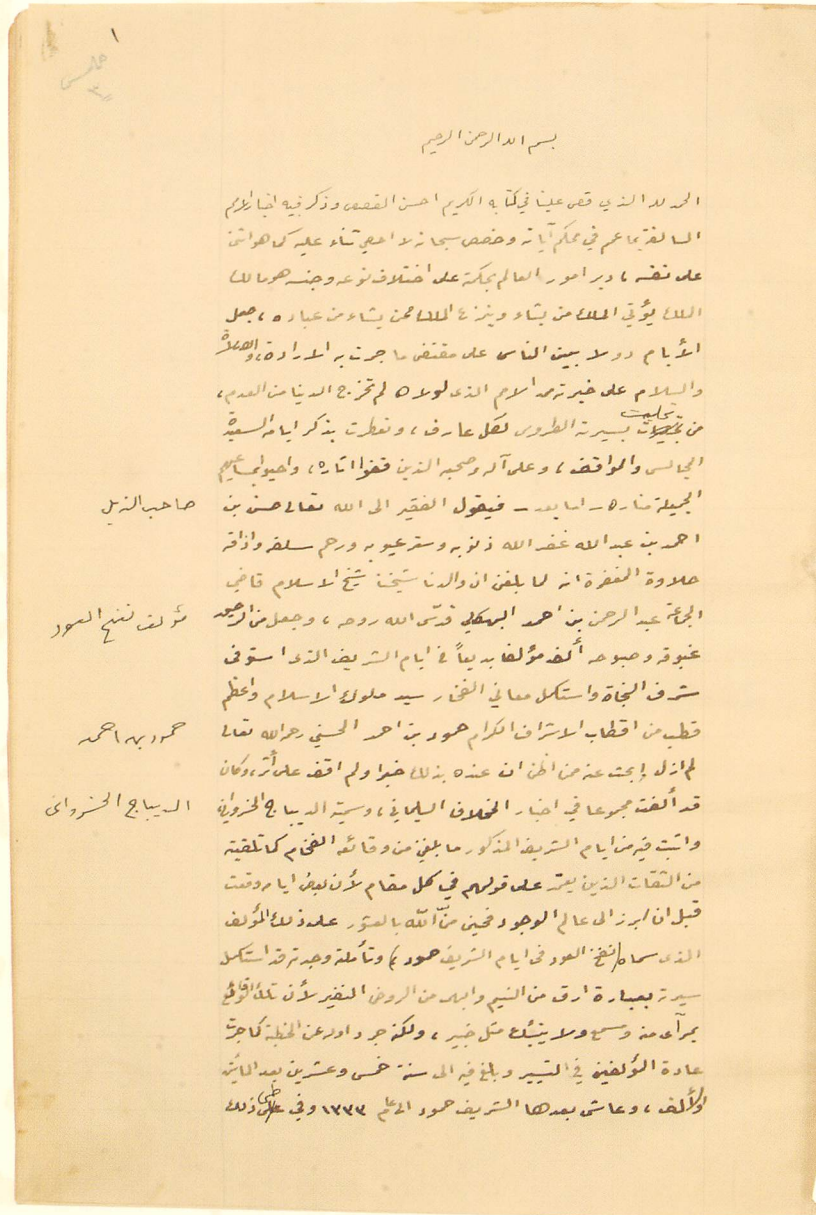 ١
بسم الله الرحمن الرحيم
الحمد لله الذي قص علينا في كتابه الكريم احسن القصص وذكر فيه اخبار الامم
السالفة بما عم في محكم آياته وخصص سبحانه لا احصي ثناء عليه كما هو اثنى
على نفسه، دبر امور العالم بحكمته على اختلاف نوعه وجنسه هو مالك
الملك يؤتي الملك من يشاء وينزع الملك ممن يشاء من عباده، جعل
الأيام دولا بين الناس على مقتضى ما جرت به الارادة، والصلاة
والسلام على خيرته من الامم الذي لولاه لم تخرج الدنيا من العدم،
من تحلت بسيرته الطروس لكل عارف، وتعطرت بذكر ايامه السعيدة
المجالس والمواقف، وعلى آله وصحبه الذين قفوا اثاره، واحيوا بمساعيهم
الجميلة مناره، اما بعد فيقول الفقير الى الله تعالى حسن بن
صاحب الذيل
احمد بن عبد الله غفر الله ذنوبه وستر عيوبه ورحم سلفه واذاقه
حلاوة المغفرة انه لما بلغني ان والدنا شيخنا شيخ الاسلام قاضي
الجماعة عبد الرحمن بن احمد البهكلي قدّس الله روحه، وجعل من الرحيق
مؤلف نفح العود
غبوقه وصبوحه ألف مؤلفا بديعاً في ايام الشريف الذي استوفى
شرف النجاة واستكمل معاني الفخار سيد ملوك الاسلام واعظم
قطب من اقطاب الاشراف الكرام حمود بن احمد الحسني رحمه الله تعالى
حمود بن احمد
لم ازل ابحث عنه من اظن ان عنده بذلك خبرا ولم اقف على أثر، وكان
قد ألفت مجموعا في اخبار المخلاف السليماني، وسميته الديباج الخسرواني
الديباج الخسرواني
واثبت فيه من ايام الشريف المذكور ما بلغني من وقائعه الفخام كما تلقيته
من الثقات الذين يعتمد على قولهم في كل مقام لأن بعض ايامه وقعت
قبل ان ابرز الى عالم الوجود فحين منّ الله بالعثور على ذلك المؤلف
الذي سماه (نفح العود في ايام الشريف حمود) وتأملته وجدته قد استكمل
سيرته بعبارة ارق من النسيم وابهى من الروض النضير لأن تلك الوقائع
بمرآى منه ومسمع ولا ينبئك مثل خبير، ولكنه جرد اوله عن الخطبة كما جرت
عادة المؤلفين في السير وبلغ فيه الى سنة خمس وعشرين بعد المائتين
والألف، وعاش بعدها الشريف حمود الى عام ١٢٣٣ وفي طي ذلك